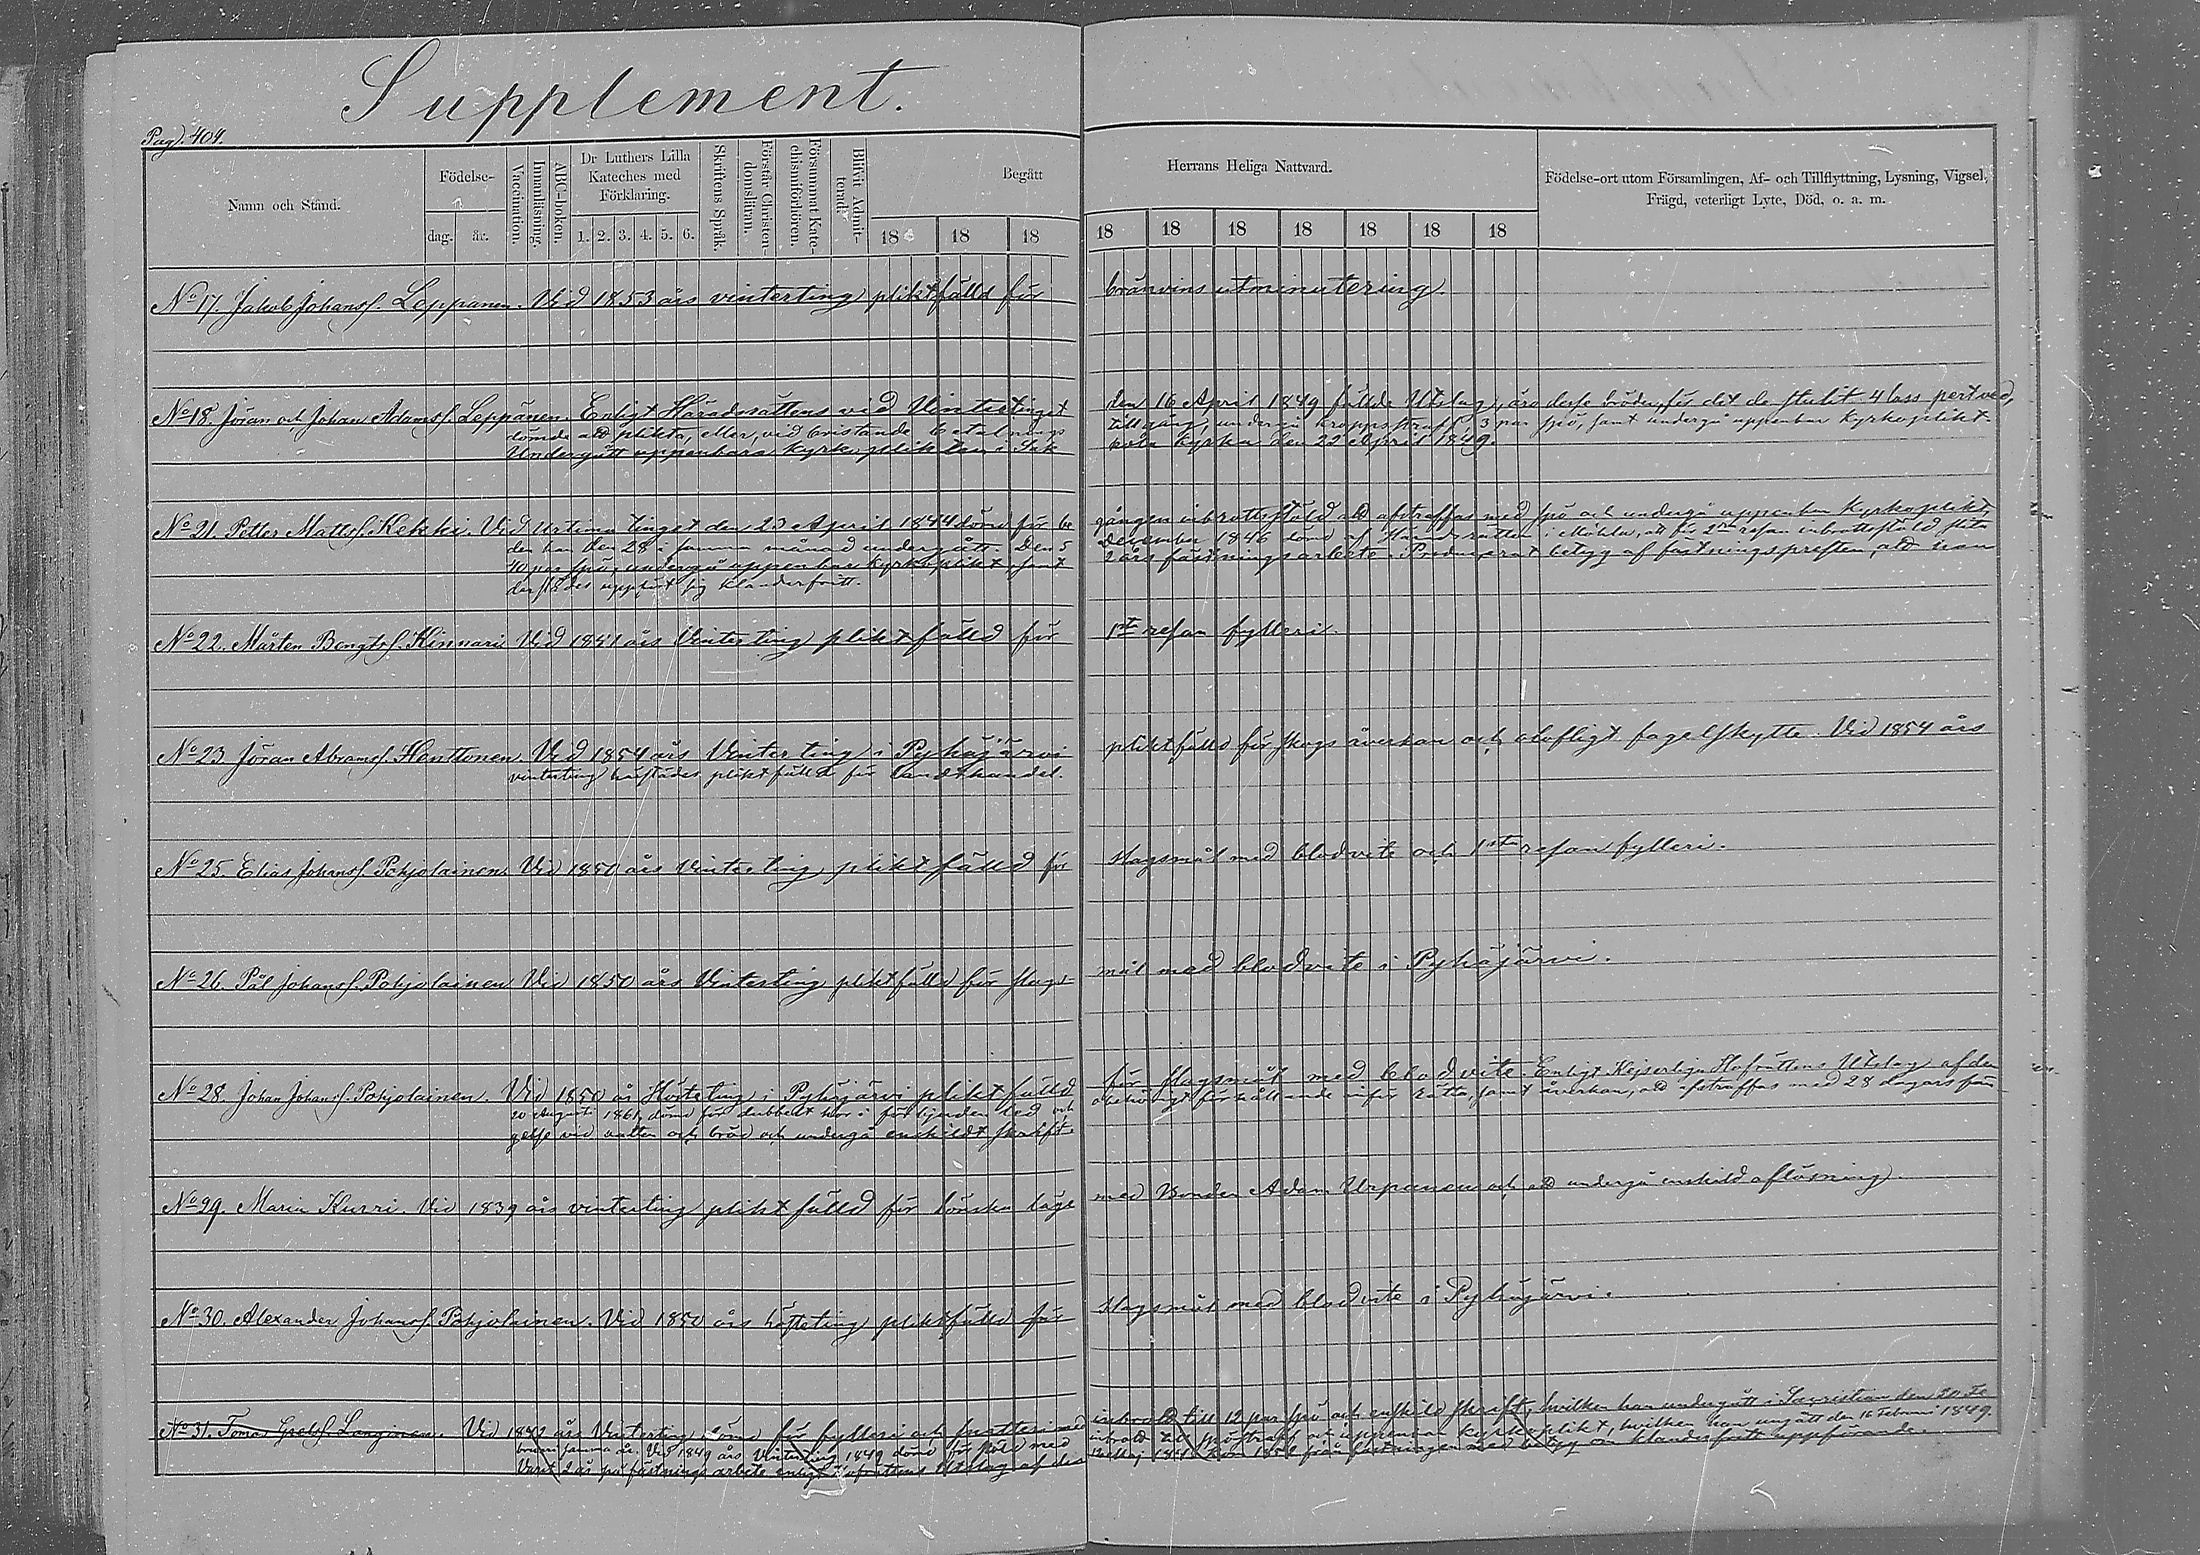 Supplement.
Pag. 404.
Namn och Stånd.
Födelse-
dag. år.
Vaccination.
Innanläsning.
ABC-boken.
Dr Luthers Lilla
Kateches med
Förklaring.
1. 2. 3. 4. 5. 6.
Skriftens Språk.
Förstår Christen-
domsläran.
Försummat Kate-
chismiförhören.
Blifvit Admit-
terad.
Begått Herrans Heliga Nattvard.
18 18 18 18 18 18 18 18 18 18
Födelse-ort utom Församlingen, Af- och Tillflyttning, Lysning, Vigsel,
Frägd, veterligt Lyte, Död, o. a. m.
No 17. Jakob Johansf. Leppänen. Vid 1853 års vinterting pliktfälld för bränvins utminutering.
No 18. Jöran och Johan Adamsf. Leppänen. Enligt Häradsrättens vid Vintertinget den 16 April 1849 fällde Utslag, äro desse bröder, för det de stulit 4 lass pertved,
dömde att plikta, eller, vid bristande betalnings tillgång, undergå kroppsstraff 3 par spö, samt undergå uppenbar kyrkoplikt.
Undergått uppenbara kyrkoplikten i kyrka den 22 April 1849.
No 21. Petter Mattsf. Kekki. Vid Urtima tinget den 23 April 1844 dömd för be gången inbrottsstöld att afstraffas med spö och undergå uppenbar Kyrkoplikt,
den han den 28 i samma månad undergått. Den 5 December 1846 dömd af Häradsrätten i Mohla, att för 2dra resan inbrottsstöld slita
40 par spö, undergå uppenbar kyrkoplikt samt 2 års fästningsarbete. Producerat betyg af fästningspresten, att han
derstädes uppfört sig klanderfritt.
No 22. Mårten Bengtsf. Kinnari Vid 1841 års Vinterting pliktfälld för 1sta resan fylleri.
No 23. Jöran Abramsf. Henttonen. Vid 1854 års Vinterting i Pyhäjärvi pliktfälld för skogs åverkan och olofligt fogelskytte. Vid 1854 års
vinterting härstädes pliktfälld för landthandel.
No 25. Elias Johansf. Pohjolainen. Vid 1850 års Vinterting pliktfälld för slagsmål med blodvite och 1sta resan fylleri.
No 26. Pål Johansf. Pohjolainen Vid 1850 års Vinterting pliktfälld för slags mål med blodvite i Pyhäjärvi.
No 28. Johan Johansf. Pohjolainen. Vid 1850 års Höstting i Pyhäjärvi pliktfälld för slagsmål med blodvite. Enligt Kejserliga Hofrättens Utslag af den
20 Augusti 1861, dömd för dubbelt hor i förbjuden led och obehörigt förhållande inför rätta, samt åverkan, att afstraffas med 28 dagars fän
gelse vid vatten och bröd och undergå enskildt skrift.
No 29. Maria Kurri. Vid 1839 års vinterting pliktfälld för lönska läge med Bonden Adam Urpanen och att undergå enskild aflösning.
No 30. Alexander Johansf. Pohjolainen. Vid 1850 års höstting pliktfälld för slagsmål med blodvite i Pyhäjärvi.
No 31. Tomas Langinen. Vid års Vinterting dömd för fylleri och snatteri med inbrott till 12 par spö och enskild skrift, hvilken han undergått i Sacristian den 20 Fe
bruari samma år. Vid 1849 års Vinterting 1849 dömd för stöld med inbrott till spöstraff och uppenbar kyrkoplikt, hvilken han undgått den 16 Februari 1849.
Varit 2 år på fästnings arbete enligt Hofrättens Utslag af den från fästningen med betyg om klanderfritt uppförande.